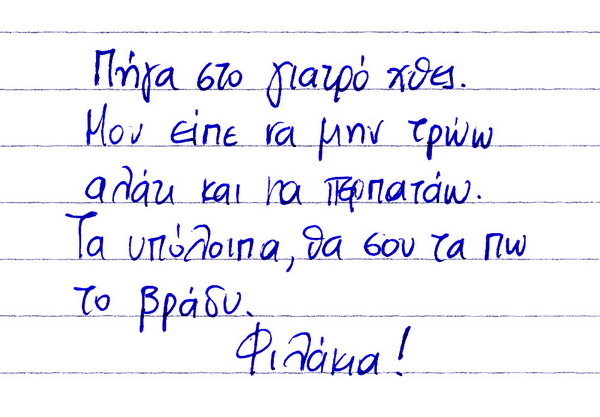 Πήγα στο γιατρό χθες.
Μου είπε να μην τρώω
αλάτι και να περπατάω.
Τα υπόλοιπα, θα σου τα πω
το βράδυ.
Φιλάκια!